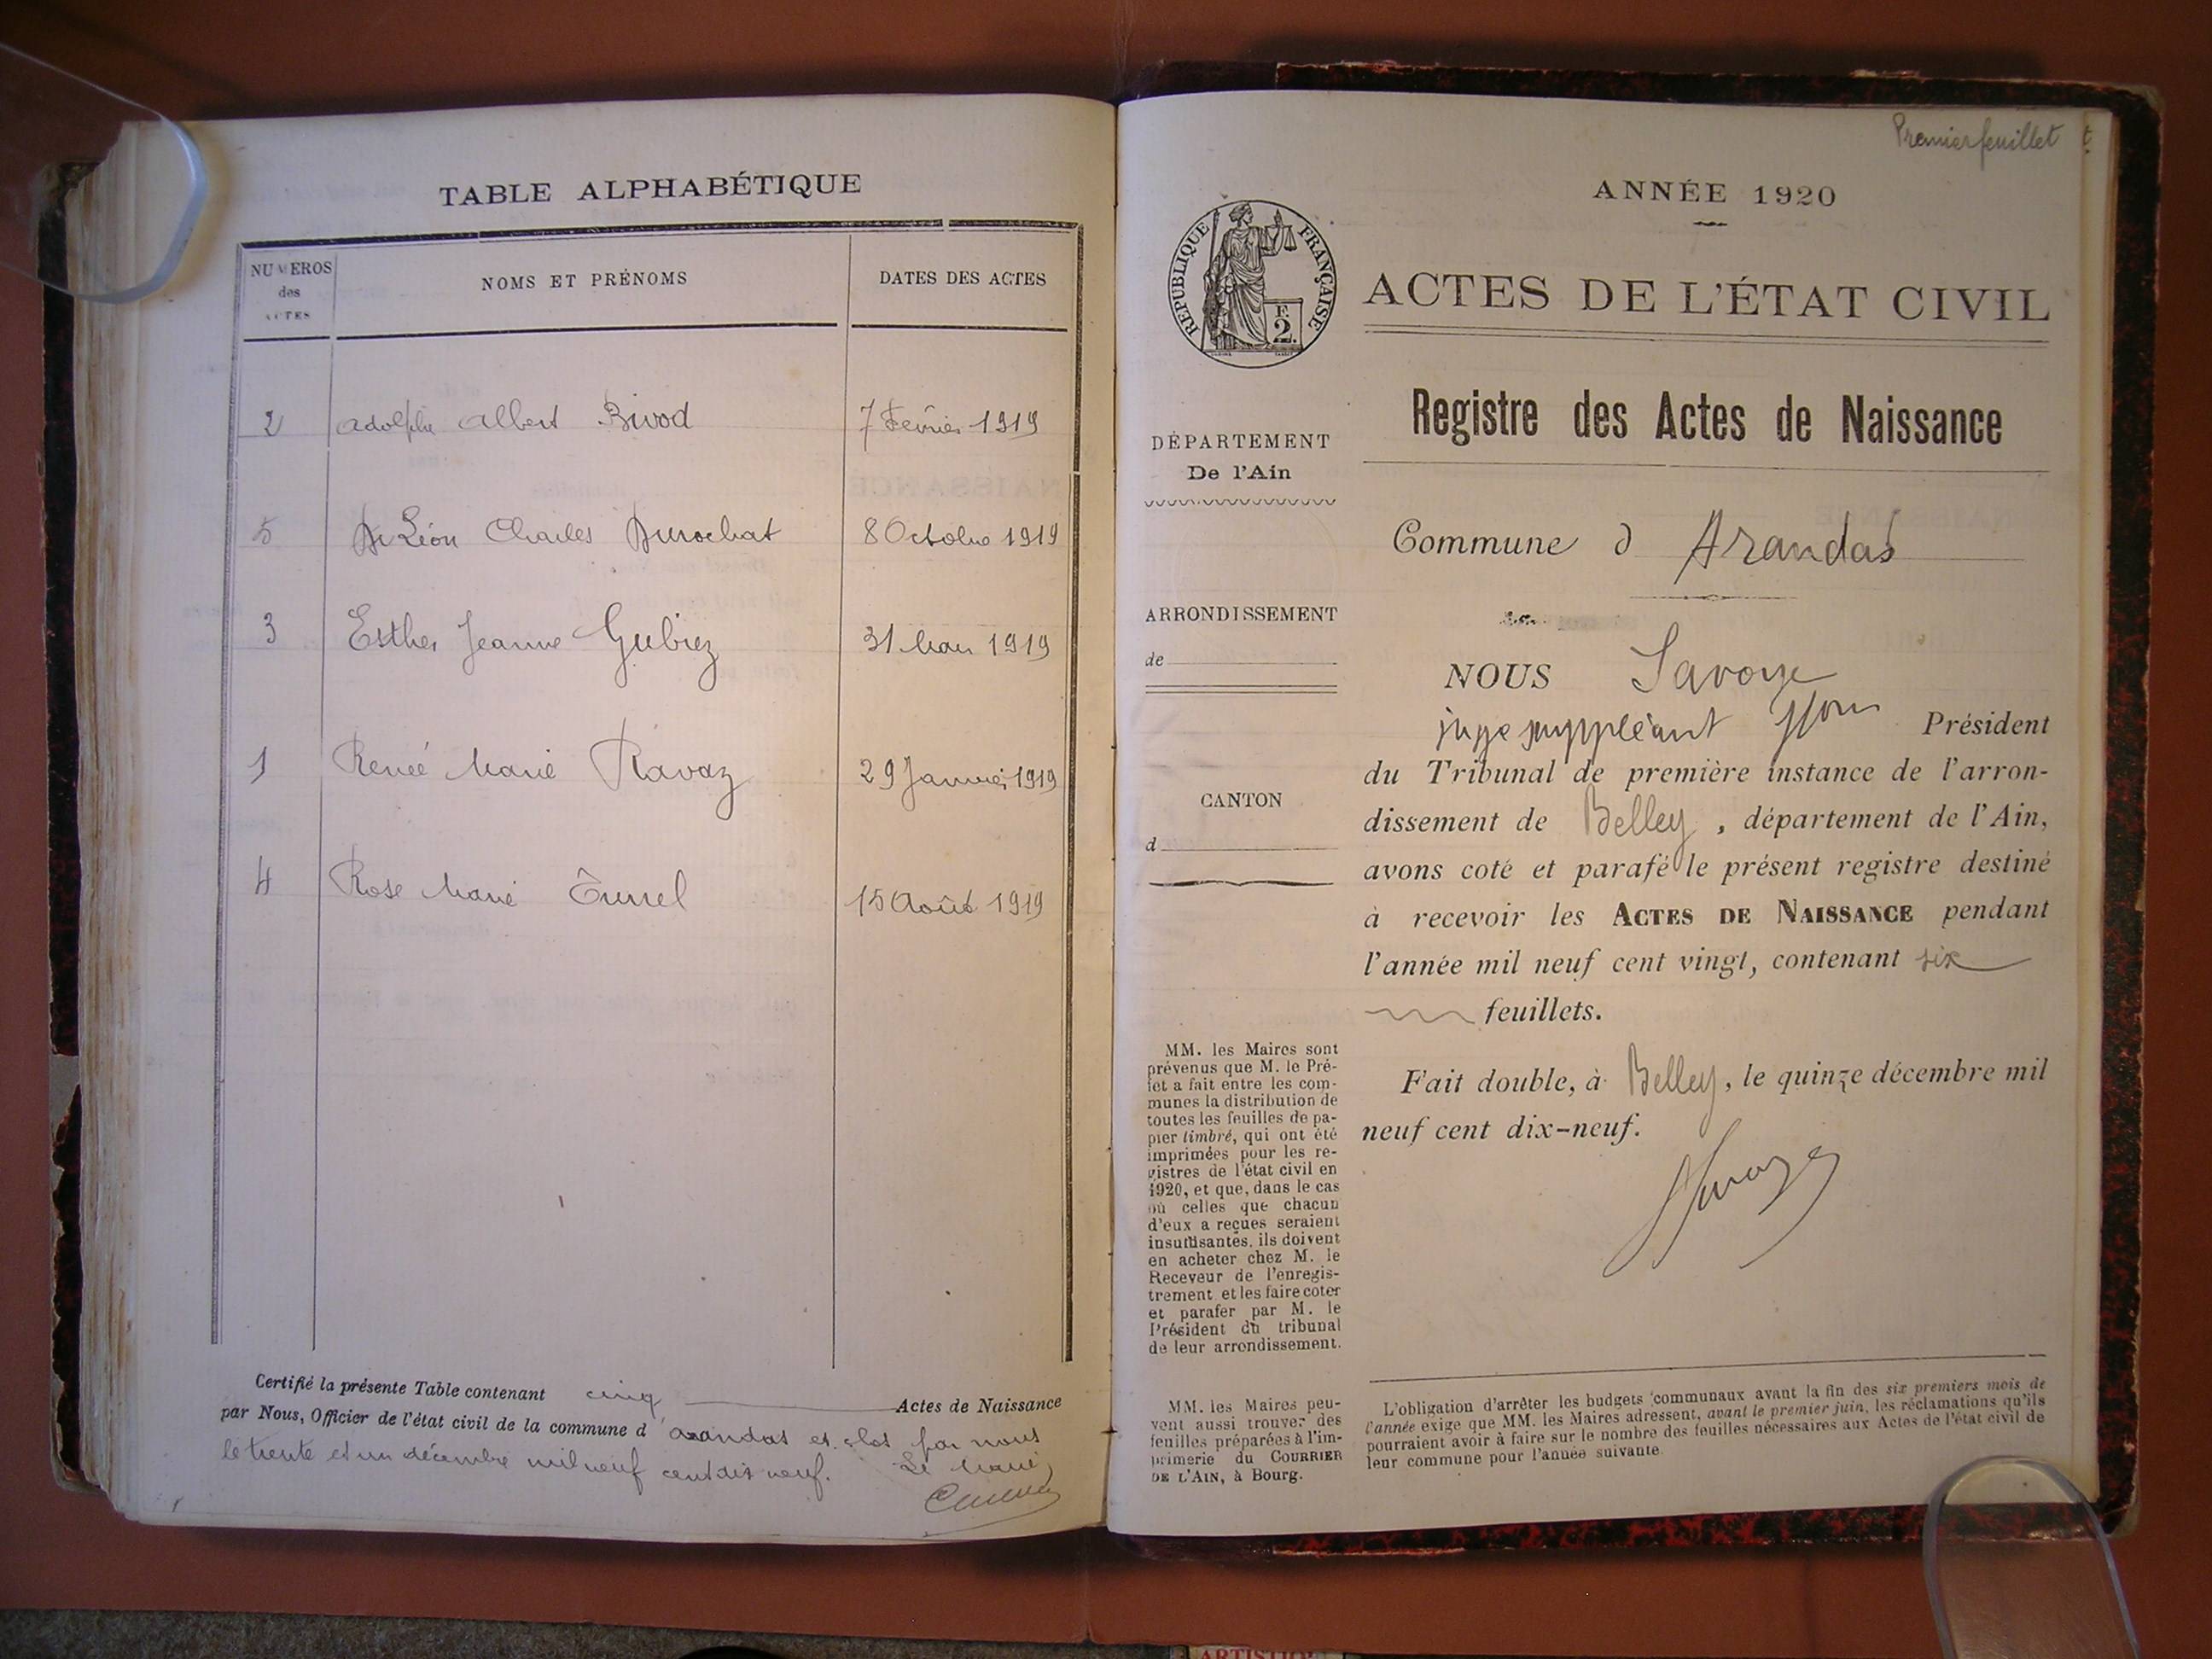 TABLE ALPHABÉTIQUE
NUMEROS des ACTES
NOMS ET PRÉNOMS
DATES DES ACTES
2 Adolphe Albert Bivod 7 Février 1919
5 Léon Charles Durochat 8 Octobre 1919
3 Esther Jeanne Gubiez 31 Mars 1919
1 Renée Marie Ravaz 29 Janvier 1919
4 Rose Marie Turrel 15 Août 1919
Certifié la présente Table contenant cinq Actes de Naissance
par Nous, Officier de l'état civil de la commune d'Arandas et clos par nous
le trente et un décembre mil neuf cent dix neuf. Le Maire,
Premier feuillet
ANNÉE 1920
RÉPUBLIQUE FRANÇAISE
F.
2.
ACTES DE L'ÉTAT CIVIL
Registre des Actes de Naissance
DÉPARTEMENT
De l'Ain
Commune d Arandas
ARRONDISSEMENT
de
CANTON
d
NOUS Savoye
juge suppléant pour Président
du Tribunal de première instance de l'arron-
dissement de Belley, département de l'Ain,
avons coté et parafé le présent registre destiné
à recevoir les ACTES DE NAISSANCE pendant
l'année mil neuf cent vingt, contenant six
feuillets.
Fait double, à Belley, le quinze décembre mil
neuf cent dix-neuf.
Savoye
MM. les Maires sont
prévenus que M. le Pré-
fet a fait entre les com-
munes la distribution de
toutes les feuilles de pa-
pier timbré, qui ont été
imprimées pour les re-
gistres de l'état civil en
1920, et que, dans le cas
où celles que chacun
d'eux a reçues seraient
insuffisantes, ils doivent
en acheter chez M. le
Receveur de l'enregis-
trement et les faire coter
et parafer par M. le
Président du tribunal
de leur arrondissement.
MM. les Maires peu-
vent aussi trouver des
feuilles préparées à l'im-
primerie du COURRIER
DE L'AIN, à Bourg.
L'obligation d'arrêter les budgets communaux avant la fin des six premiers mois de
l'année exige que MM. les Maires adressent, avant le premier juin, les réclamations qu'ils
pourraient avoir à faire sur le nombre des feuilles nécessaires aux Actes de l'état civil de
leur commune pour l'année suivante.